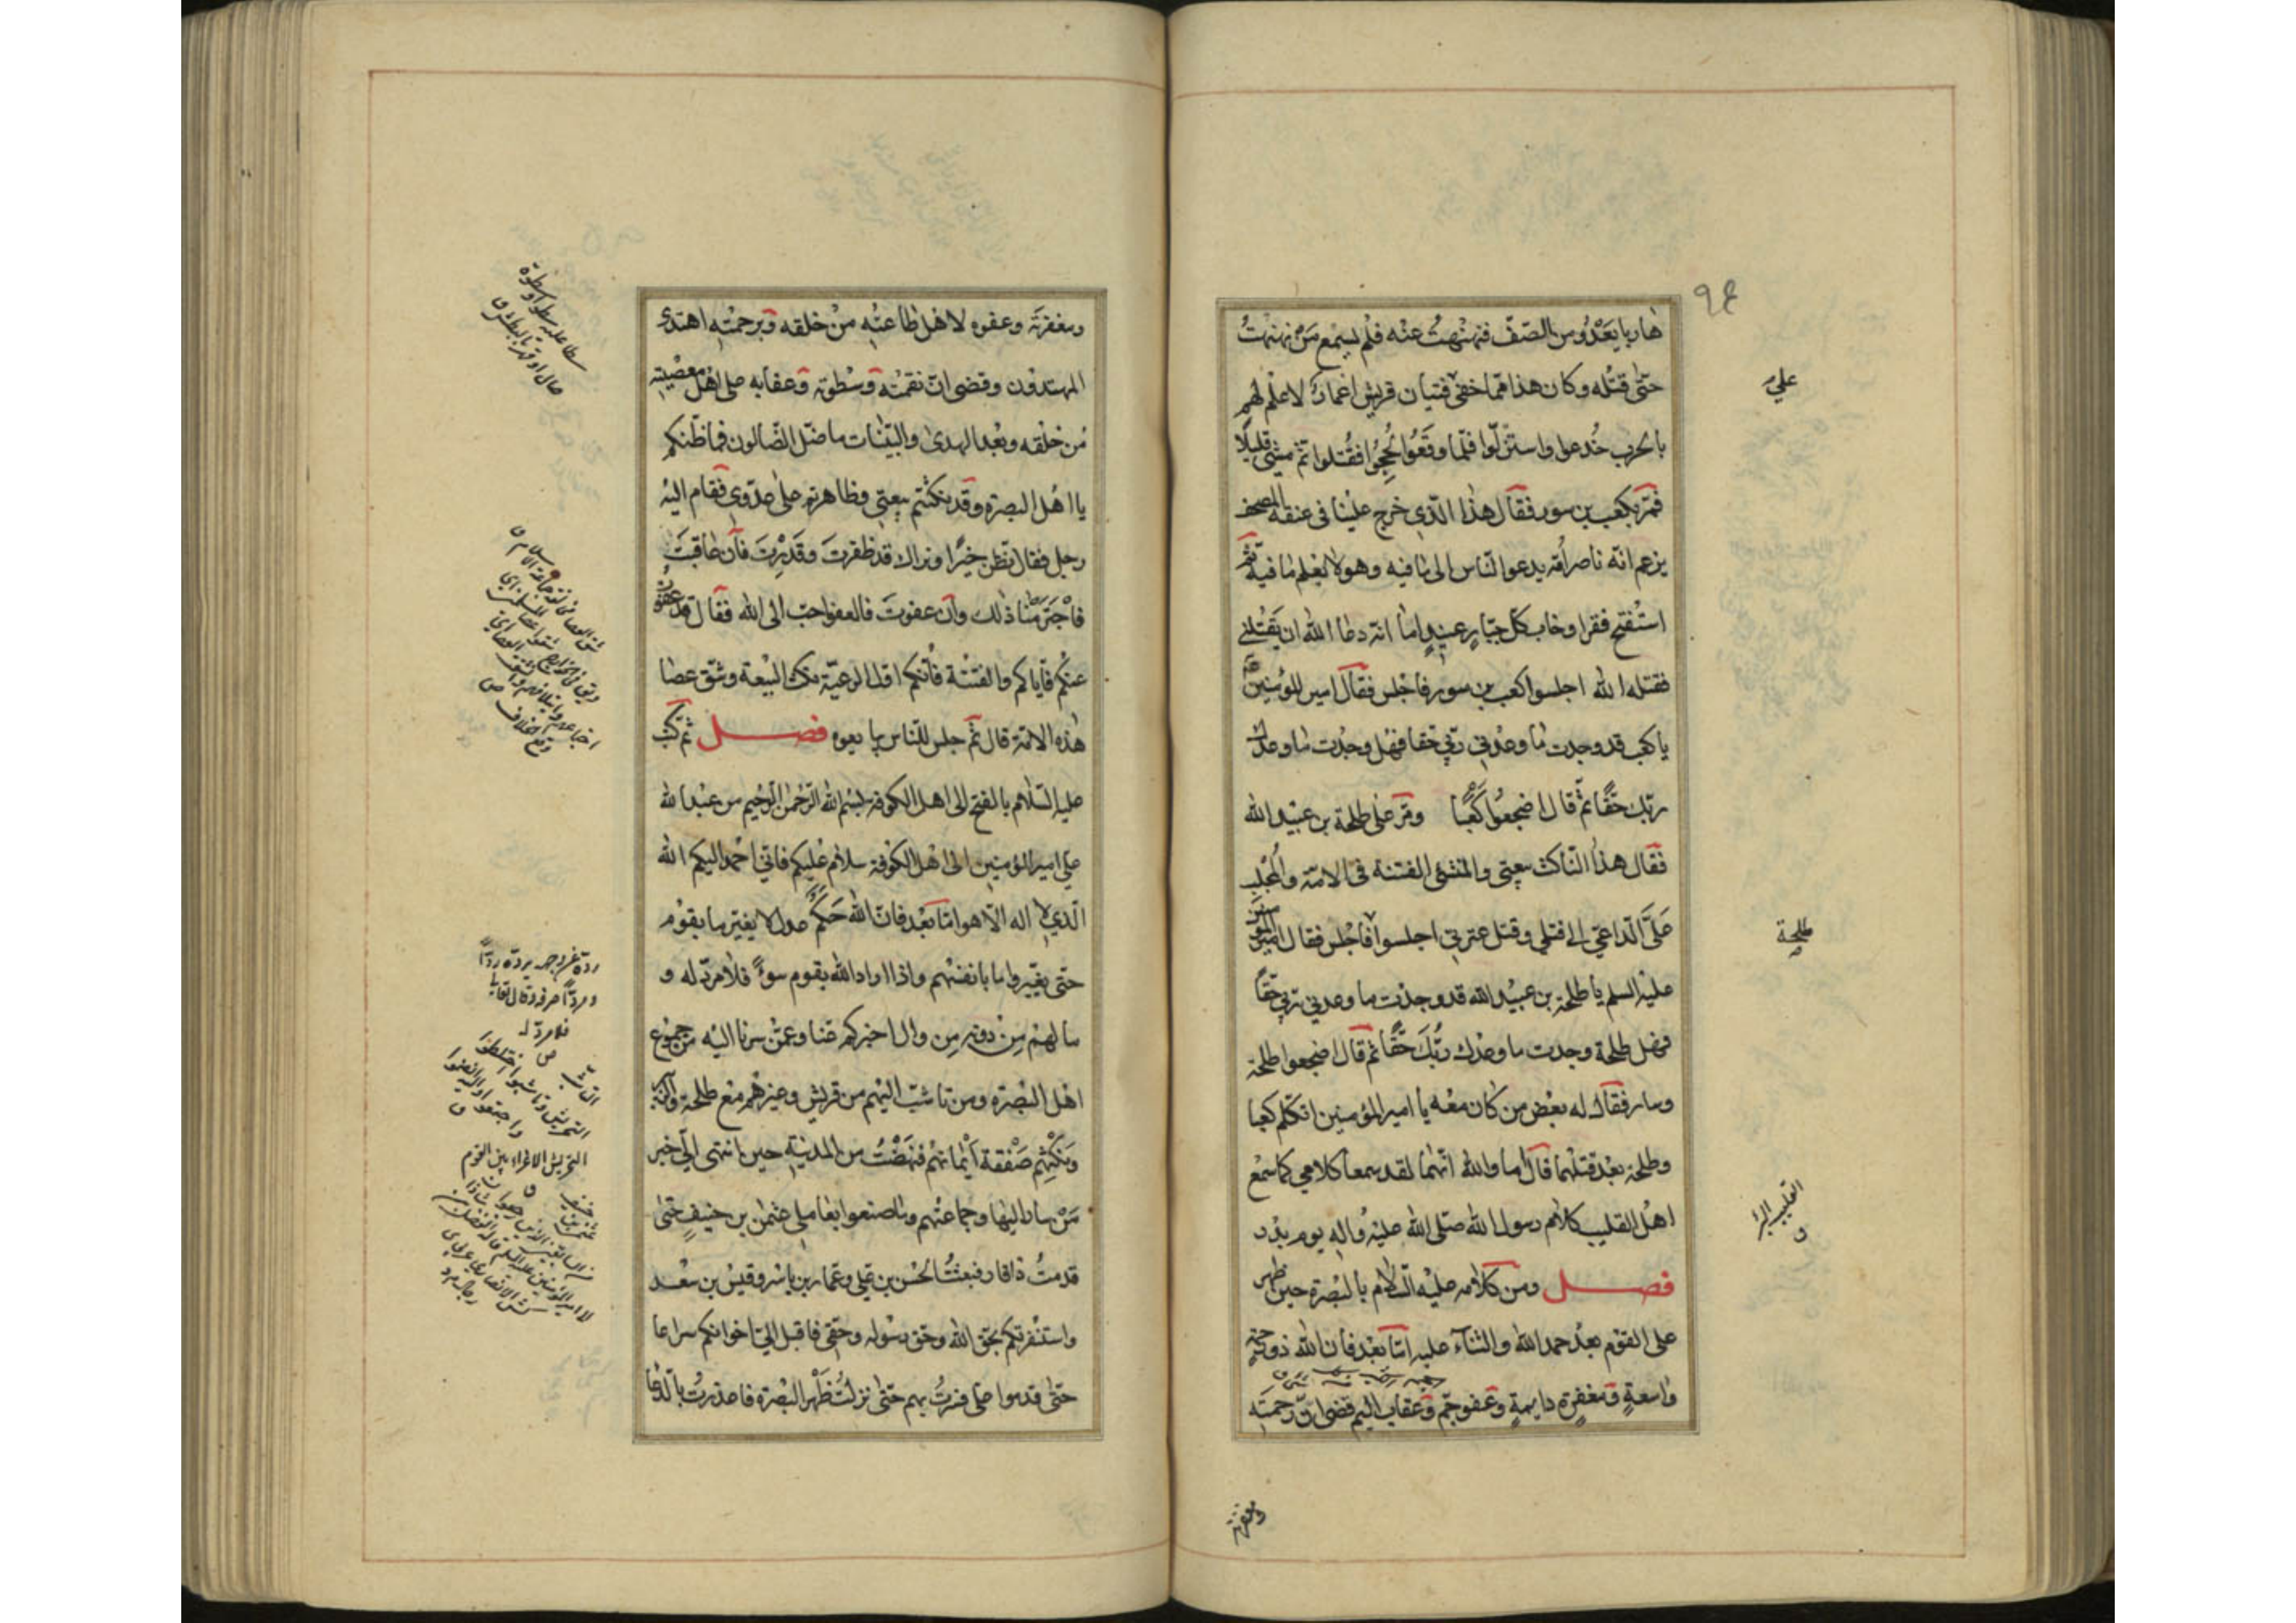 ٩٤
هاربا يعدو من الصف فنهنهت عنه فلم يسمع من نهنهت
حتى قتله وكان هذا مما خفي فتيان قريش اغمار لا علم لهم
بالحرب خدعوا واستنزلوا فلما وقعوا لحجوا فقتلوا ثم مشى قليلا
فمر بكعب بن سور فقال هذا الذي خرج علينا في عنقه المصحف
يزعم انه ناصر امه يدعو الناس الى ما فيه وهو لا يعلم ما فيه ثم
استفتح فقرا وخاب كل جبار عنيد اما انه دعا الله ان يقتلني
فقتله الله اجلسوا كعب بن سور فاجلس فقال امير المؤمنين
يا كعب قد وجدت ما وعدني ربي حقا فهل وجدت ما وعدك
ربك حقا ثم قال اضجعوا كعبا ومر على طلحة بن عبيد الله
فقال هذا الناكث بيعتي والمنشئ الفتنة في الامة والمجلب
علي الداعي الى قتلي وقتل عترتي اجلسوا فاجلس فقال امير المؤمنين
عليه السلم يا طلحة بن عبيد الله قد وجدت ما وعدني ربي حقا
فهل طلحة وجدت ما وعدك ربك حقا ثم قال اضجعوا طلحة
وسار فقال له بعض من كان معه يا امير المؤمنين اتكلم كعبا
وطلحة بعد قتلهما قال اما والله انهما لقد سمعا كلامي كما سمع
اهل القليب كلام رسول الله صلى الله عليه واله يوم بدر
فصل ومن كلامه عليه السلام بالبصرة حين ظهر
على القوم بعد حمد الله والثناء عليه اما بعد فان الله ذو رحمة
واسعة ومغفرة دايمة وعفو جم وعقاب اليم قضى ان رحمته
ومغفرته
علي
طلحة
القليب البئر
ق
ومغفرته وعفوه لاهل طاعته من خلقه وبرحمته اهتدى
المهتدون وقضى ان نقمته وسطوته وعقابه على اهل معصيته
من خلقه وبعد الهدى والبينات ما ضل الضالون فما ظنكم
يا اهل البصرة وقد نكثتم بيعتي وظاهرتم على عدوي فقام اليه
رجل فقال نظن خيرا ونراك قد ظفرت وقدرت فان عاقبت
فاجترمنا ذلك وان عفوت فالعفو احب الى الله فقال قد عفوت
عنكم فاياكم والفتنة فانكم اول الرعية نكث البيعة وشق عصا
هذه الامة قال ثم جلس للناس يبايعوه فصل ثم كتب
عليه السلام بالفتح الى اهل الكوفة بسم الله الرحمن الرحيم من عبد الله
علي امير المؤمنين الى اهل الكوفة سلام عليكم فاني احمد اليكم الله
الذي لا اله الا هو اما بعد فان الله حكم عدل لا يغير ما بقوم
حتى يغيروا ما بانفسهم واذا اراد الله بقوم سوءً فلا مرد له و
ما لهم من دونه من وال اخبركم عنا وعمن سرنا اليه من جموع
اهل البصرة ومن تاشب اليهم من قريش وغيرهم مع طلحة والزبير
ونكثهم صفقة ايمانهم فنهضت من المدينة حين انتهى الي خبر
من سار اليها وجماعتهم وما صنعوا بعاملي عثمن بن حنيف حتى
قدمت ذا قار فبعثت الحسن بن علي وعمار بن ياسر وقيس بن سعد
واستنفرتكم بحق الله وحق رسوله وحقي فاقبل الي اخوانكم سراعا
حتى قدموا علي فسرت بهم حتى نزلت ظهر البصرة فاعذرت بالدعا
سطا عليه سطوا وسطوة
صال او قهر بالبطش ق
رده عن وجهه يرده ردا
ومردا صرفه وقال تعالى
فلا مرد له